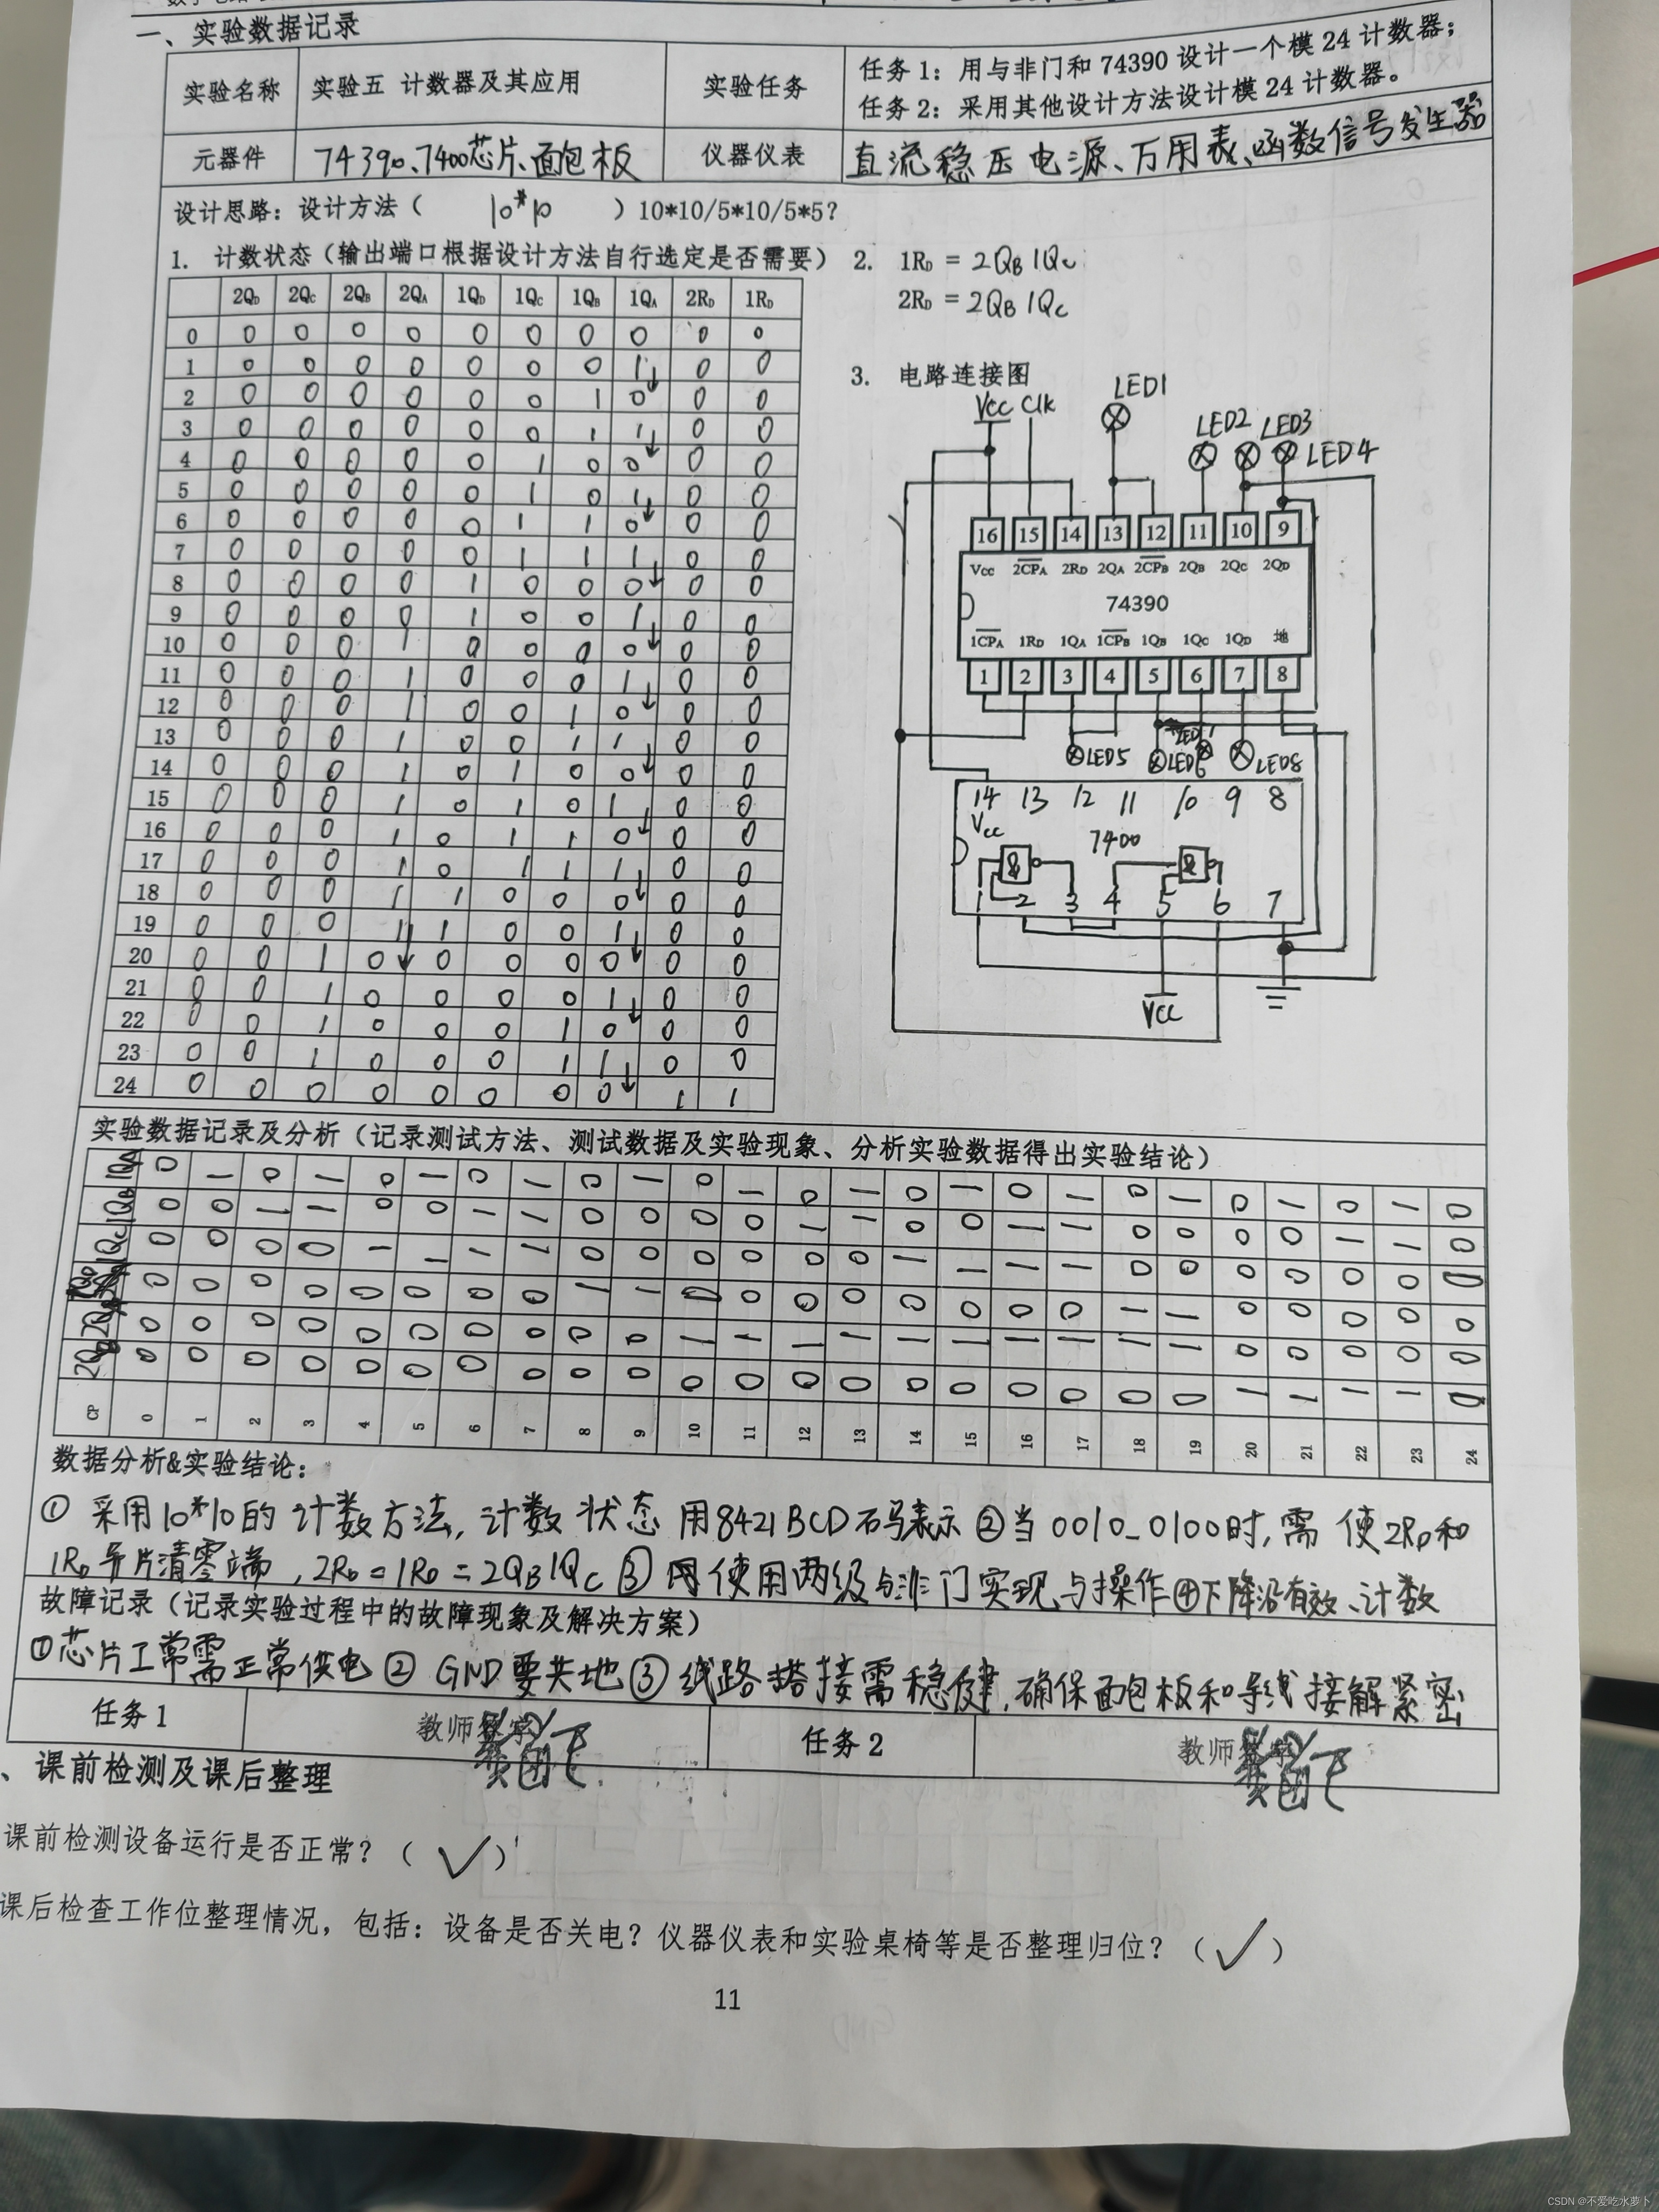 一、实验数据记录
实验名称 实验五 计数器及其应用 实验任务 任务1：用与非门和74390设计一个模24计数器；
任务2：采用其他设计方法设计模24计数器。
元器件 74390、7400芯片、面包板 仪器仪表 直流稳压电源、万用表、函数信号发生器
设计思路：设计方法（ 10*10 ）10*10/5*10/5*5？
1. 计数状态（输出端口根据设计方法自行选定是否需要）
2QD 2QC 2QB 2QA 1QD 1QC 1QB 1QA 2RD 1RD
0 0 0 0 0 0 0 0 0 0 0
1 0 0 0 0 0 0 0 1↓ 0 0
2 0 0 0 0 0 0 1 0 0 0
3 0 0 0 0 0 0 1 1↓ 0 0
4 0 0 0 0 0 1 0 0 0 0
5 0 0 0 0 0 1 0 1↓ 0 0
6 0 0 0 0 0 1 1 0 0 0
7 0 0 0 0 0 1 1 1↓ 0 0
8 0 0 0 0 1 0 0 0 0 0
9 0 0 0 0 1 0 0 1↓ 0 0
10 0 0 0 1 0 0 0 0 0 0
11 0 0 0 1 0 0 0 1↓ 0 0
12 0 0 0 1 0 0 1 0 0 0
13 0 0 0 1 0 0 1 1↓ 0 0
14 0 0 0 1 0 1 0 0 0 0
15 0 0 0 1 0 1 0 1↓ 0 0
16 0 0 0 1 0 1 1 0 0 0
17 0 0 0 1 0 1 1 1↓ 0 0
18 0 0 0 1 1 0 0 0 0 0
19 0 0 0 1↓ 1 0 0 1↓ 0 0
20 0 0 1 0 0 0 0 0 0 0
21 0 0 1 0 0 0 0 1↓ 0 0
22 0 0 1 0 0 0 1 0 0 0
23 0 0 1 0 0 0 1 1↓ 0 0
24 0 0 0 0 0 0 0 0 1 1
2. 1RD = 2QB 1QC
2RD = 2QB 1QC
3. 电路连接图
LED1
Vcc Clk
LED2 LED3
LED4
16 15 14 13 12 11 10 9
Vcc 2CPA 2RD 2QA 2CPB 2QB 2QC 2QD
74390
1CPA 1RD 1QA 1CPB 1QB 1QC 1QD 地
1 2 3 4 5 6 7 8
LED5 LED6 LED8
14 13 12 11 10 9 8
Vcc
7400
& &
1 2 3 4 5 6 7
Vcc
实验数据记录及分析（记录测试方法、测试数据及实验现象、分析实验数据得出实验结论）
1QA 0 1 0 1 0 1 0 1 0 1 0 1 0 1 0 1 0 1 0 1 0 1 0 1 0
1QB 0 0 1 1 0 0 1 1 0 0 0 0 1 1 0 0 1 1 0 0 0 0 1 1 0
1QC 0 0 0 0 1 1 1 1 0 0 0 0 0 0 1 1 1 1 0 0 0 0 0 0 0
1QD 0 0 0 0 0 0 0 0 1 1 0 0 0 0 0 0 0 0 1 1 0 0 0 0 0
2QA 0 0 0 0 0 0 0 0 0 0 1 1 1 1 1 1 1 1 1 1 0 0 0 0 0
2QB 0 0 0 0 0 0 0 0 0 0 0 0 0 0 0 0 0 0 0 0 1 1 1 1 0
CP 0 1 2 3 4 5 6 7 8 9 10 11 12 13 14 15 16 17 18 19 20 21 22 23 24
数据分析&实验结论：
① 采用10*10的计数方法，计数状态用8421BCD码表示②当0010_0100时，需使2RD和
1RD导片清零端，2RD=1RD=2QB1QC③使用两级与非门实现与操作④下降沿有效、计数
故障记录（记录实验过程中的故障现象及解决方案）
①芯片工常需正常供电② GND要共地③线路搭接需稳健，确保面包板和导线接解紧密
任务1 教师签字 任务2 教师签字
、课前检测及课后整理
课前检测设备运行是否正常？（ ✓ ）
课后检查工作位整理情况，包括：设备是否关电？仪器仪表和实验桌椅等是否整理归位？（ ✓ ）
11
CSDN @不爱吃水萝卜